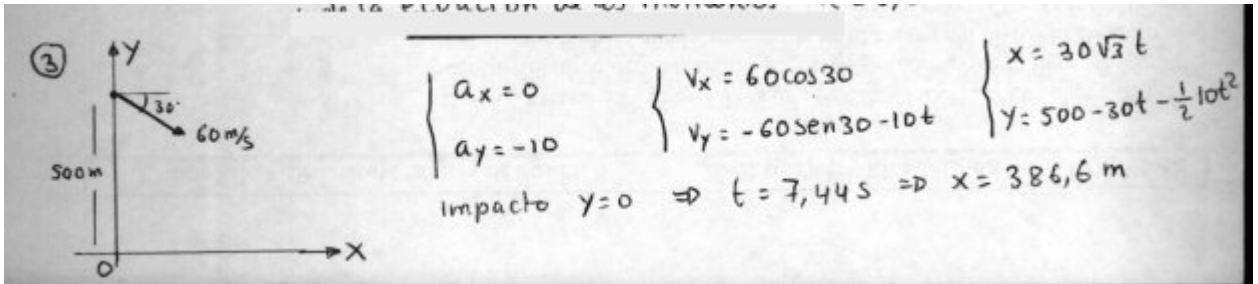 ③
Y
30°
60 m/s
500m
O
X
ax = 0
ay = -10
Vx = 60cos30
Vy = -60sen30-10t
x = 30√3 t
Y = 500-30t-½10t²
Impacto Y=0 ⇒ t = 7,44 s ⇒ x = 386,6 m